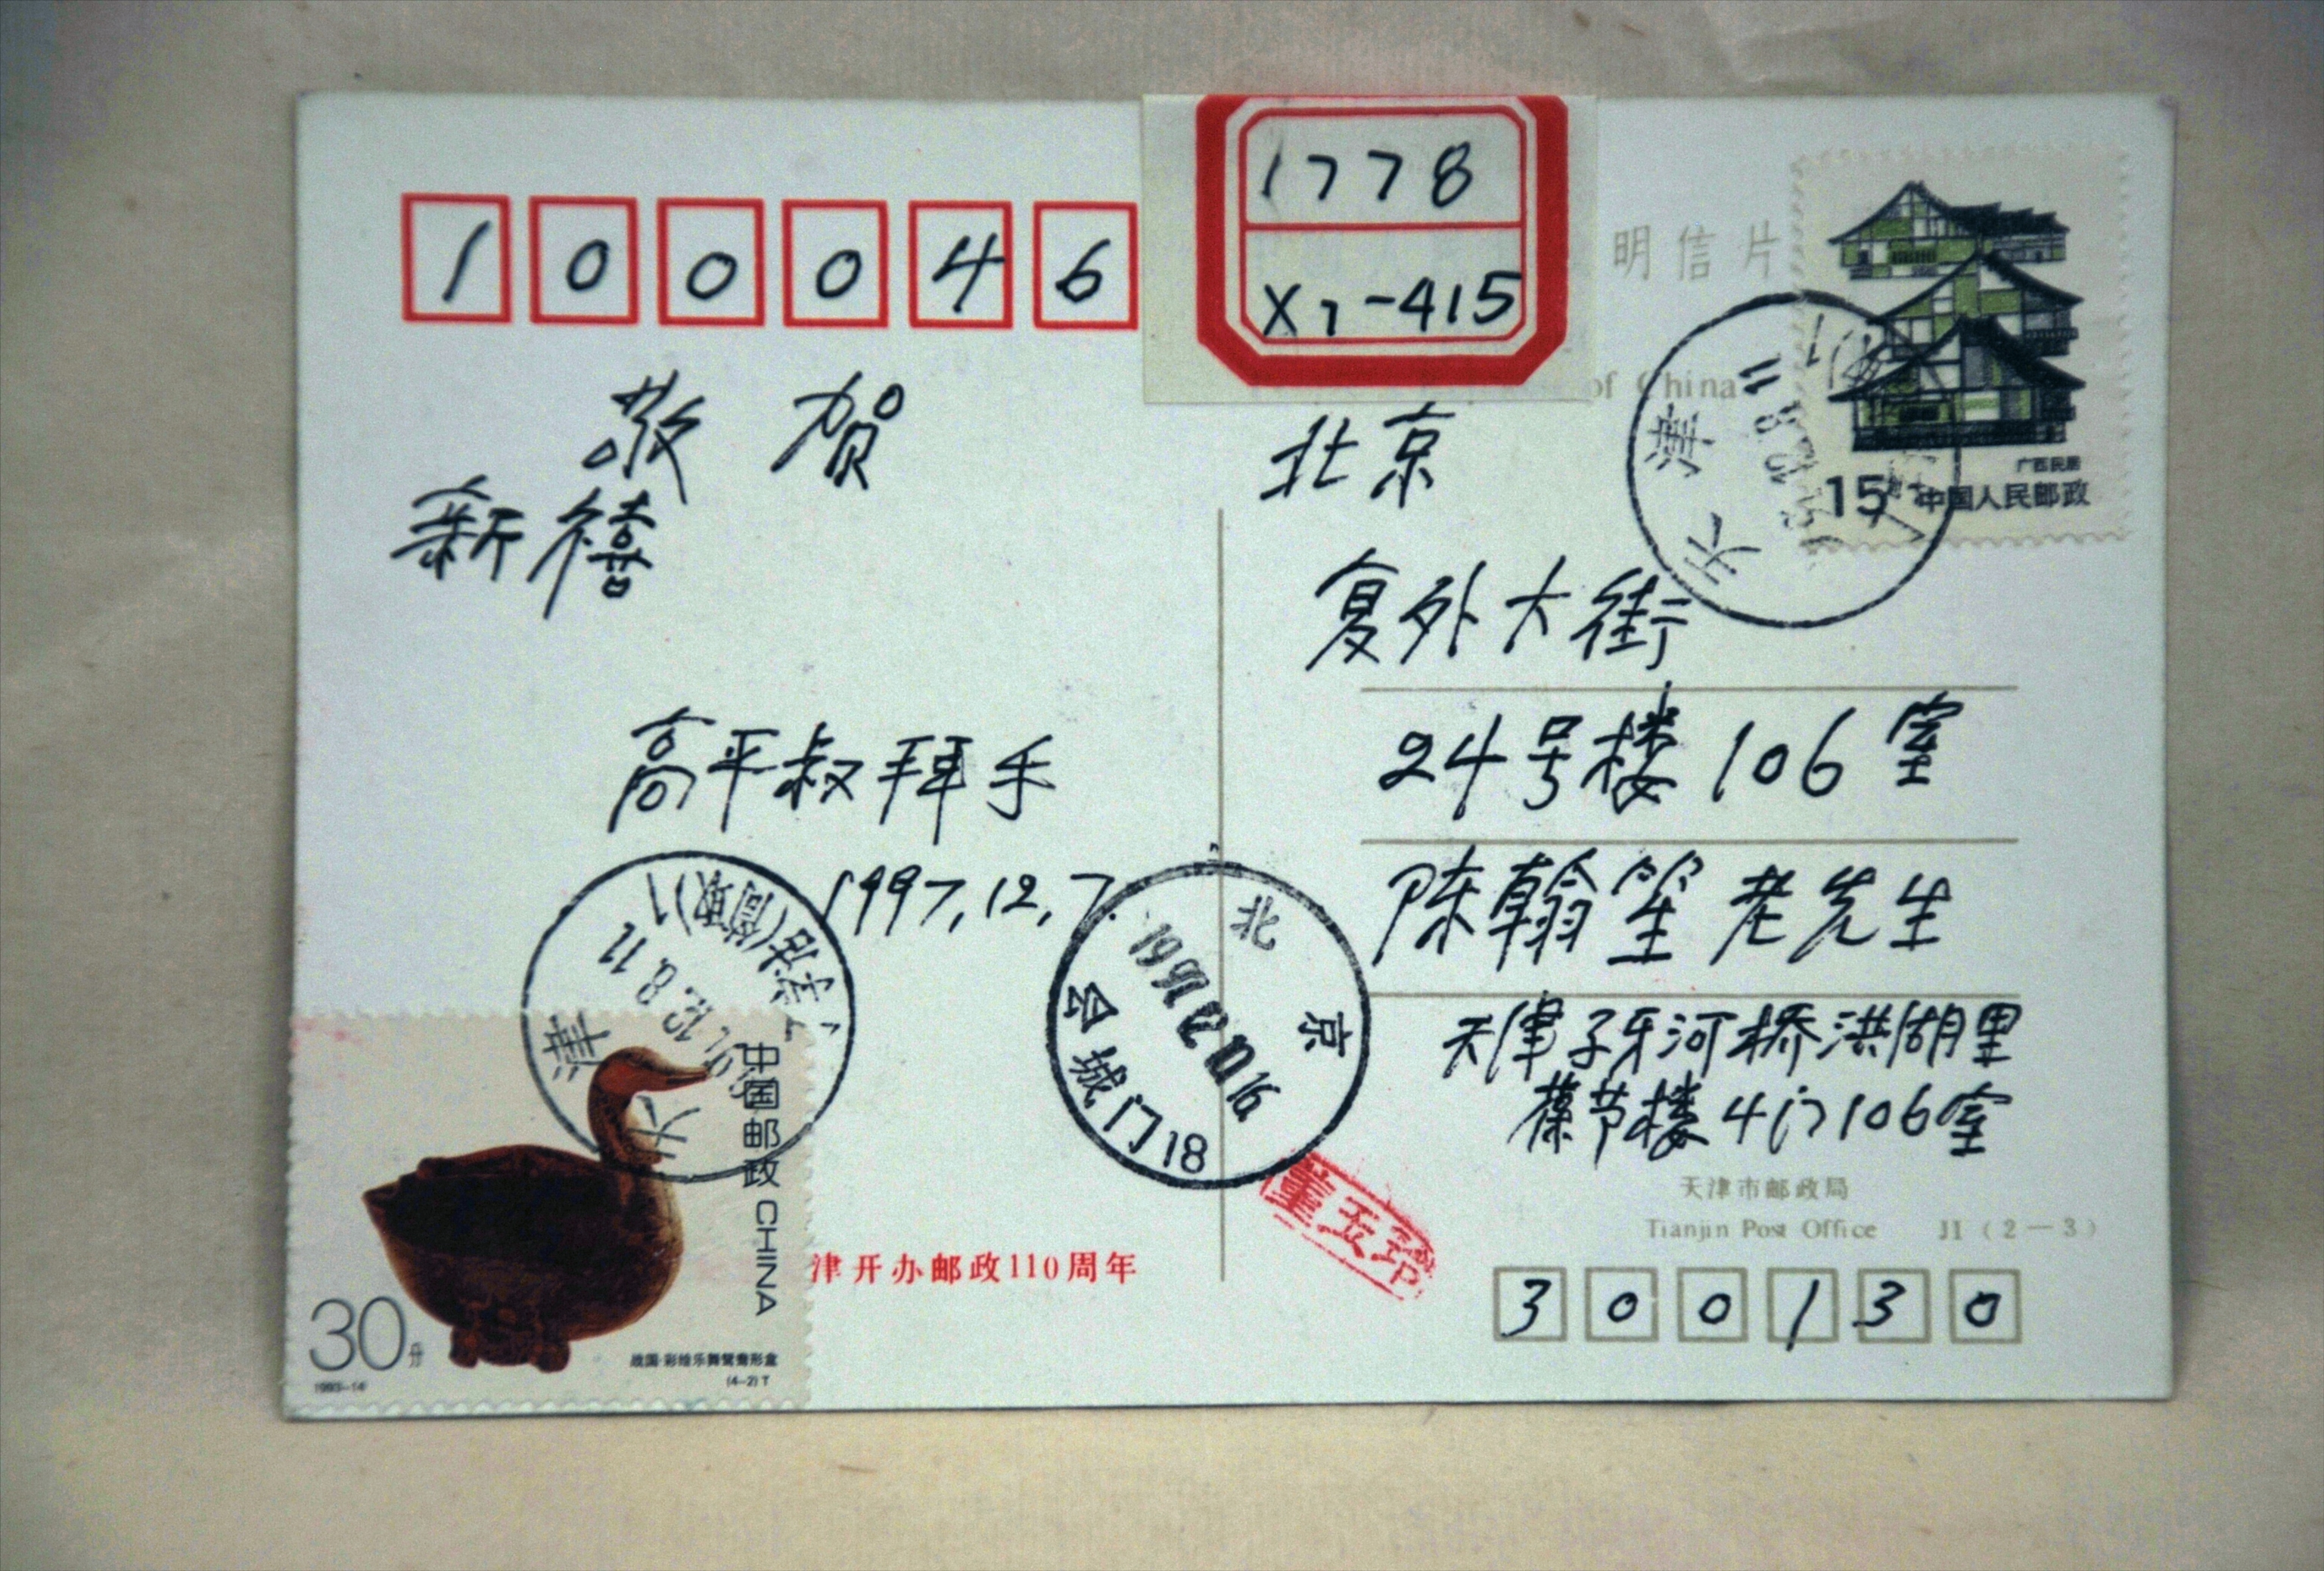 100046
1778
X7-415
明信片
of China
敬贺
新禧
高平叔拜手
1997.12.7.
北京
复外大街
24号楼106室
陈翰笙老先生
天津子牙河桥洪湖里
葆芳楼4门106室
15
广西民居
中国人民邮政
天津
97.12.8.11
天津
97.12.8.11
北京
1997.12.10.16
公城门18
中国邮政 CHINA
30分
1993-14
战国·彩绘乐舞鸳鸯形盒
(4-2)T
津开办邮政110周年
董玉玲
天津市邮政局
Tianjin Post Office J1(2—3)
300130